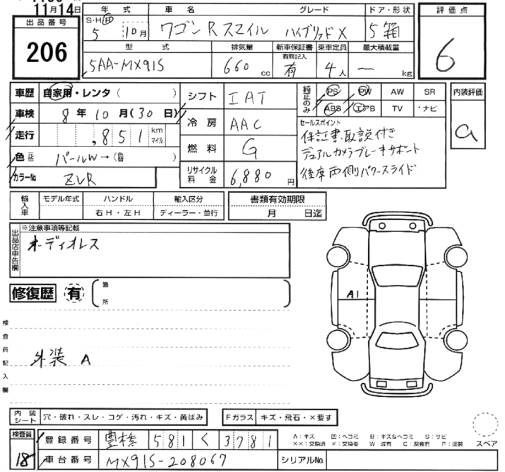 11月14日
出品番号 年式 車名 グレード ドア・形状 評価点
206
S・H・R 5年 10月 ワゴンRスマイル ハイブリッドX 5 箱 6
型式 排気量 新車保証書 有無記入 乗車定員 最大積載量
5AA-MX91S 660 cc 有 4人 — kg
車歴 自家用・レンタ ( )
車検 8年10月(30日)
走行 ,851 km マイル
色 パールW→(色)
カラーNo ZVR
シフト IAT
冷房 AAC
燃料 G
リサイクル料金 6,880 円
純正のみ PS PW AW SR
ABS エアB TV ・ナビ
セールスポイント
保証書取説付き
デュアルカメラブレーキサポート
後席両側パワースライド
内装評価
a
輸入車 モデル年式 ハンドル 輸入区分 書類有効期限
右H・左H ディーラー・並行 月 日迄
出品店申告欄 ※注意事項等記載
オーディオレス
修復歴 有 箇所
検査員記入欄
外装 A
A1
内装シート 穴・破れ・スレ・コゲ・汚れ・キズ・黄ばみ
Fガラス キズ・飛石・×要す
スペア
検査員 18
登録番号 豊橋 581 く 3781
車台番号 MX91S-208067
シリアルNo.